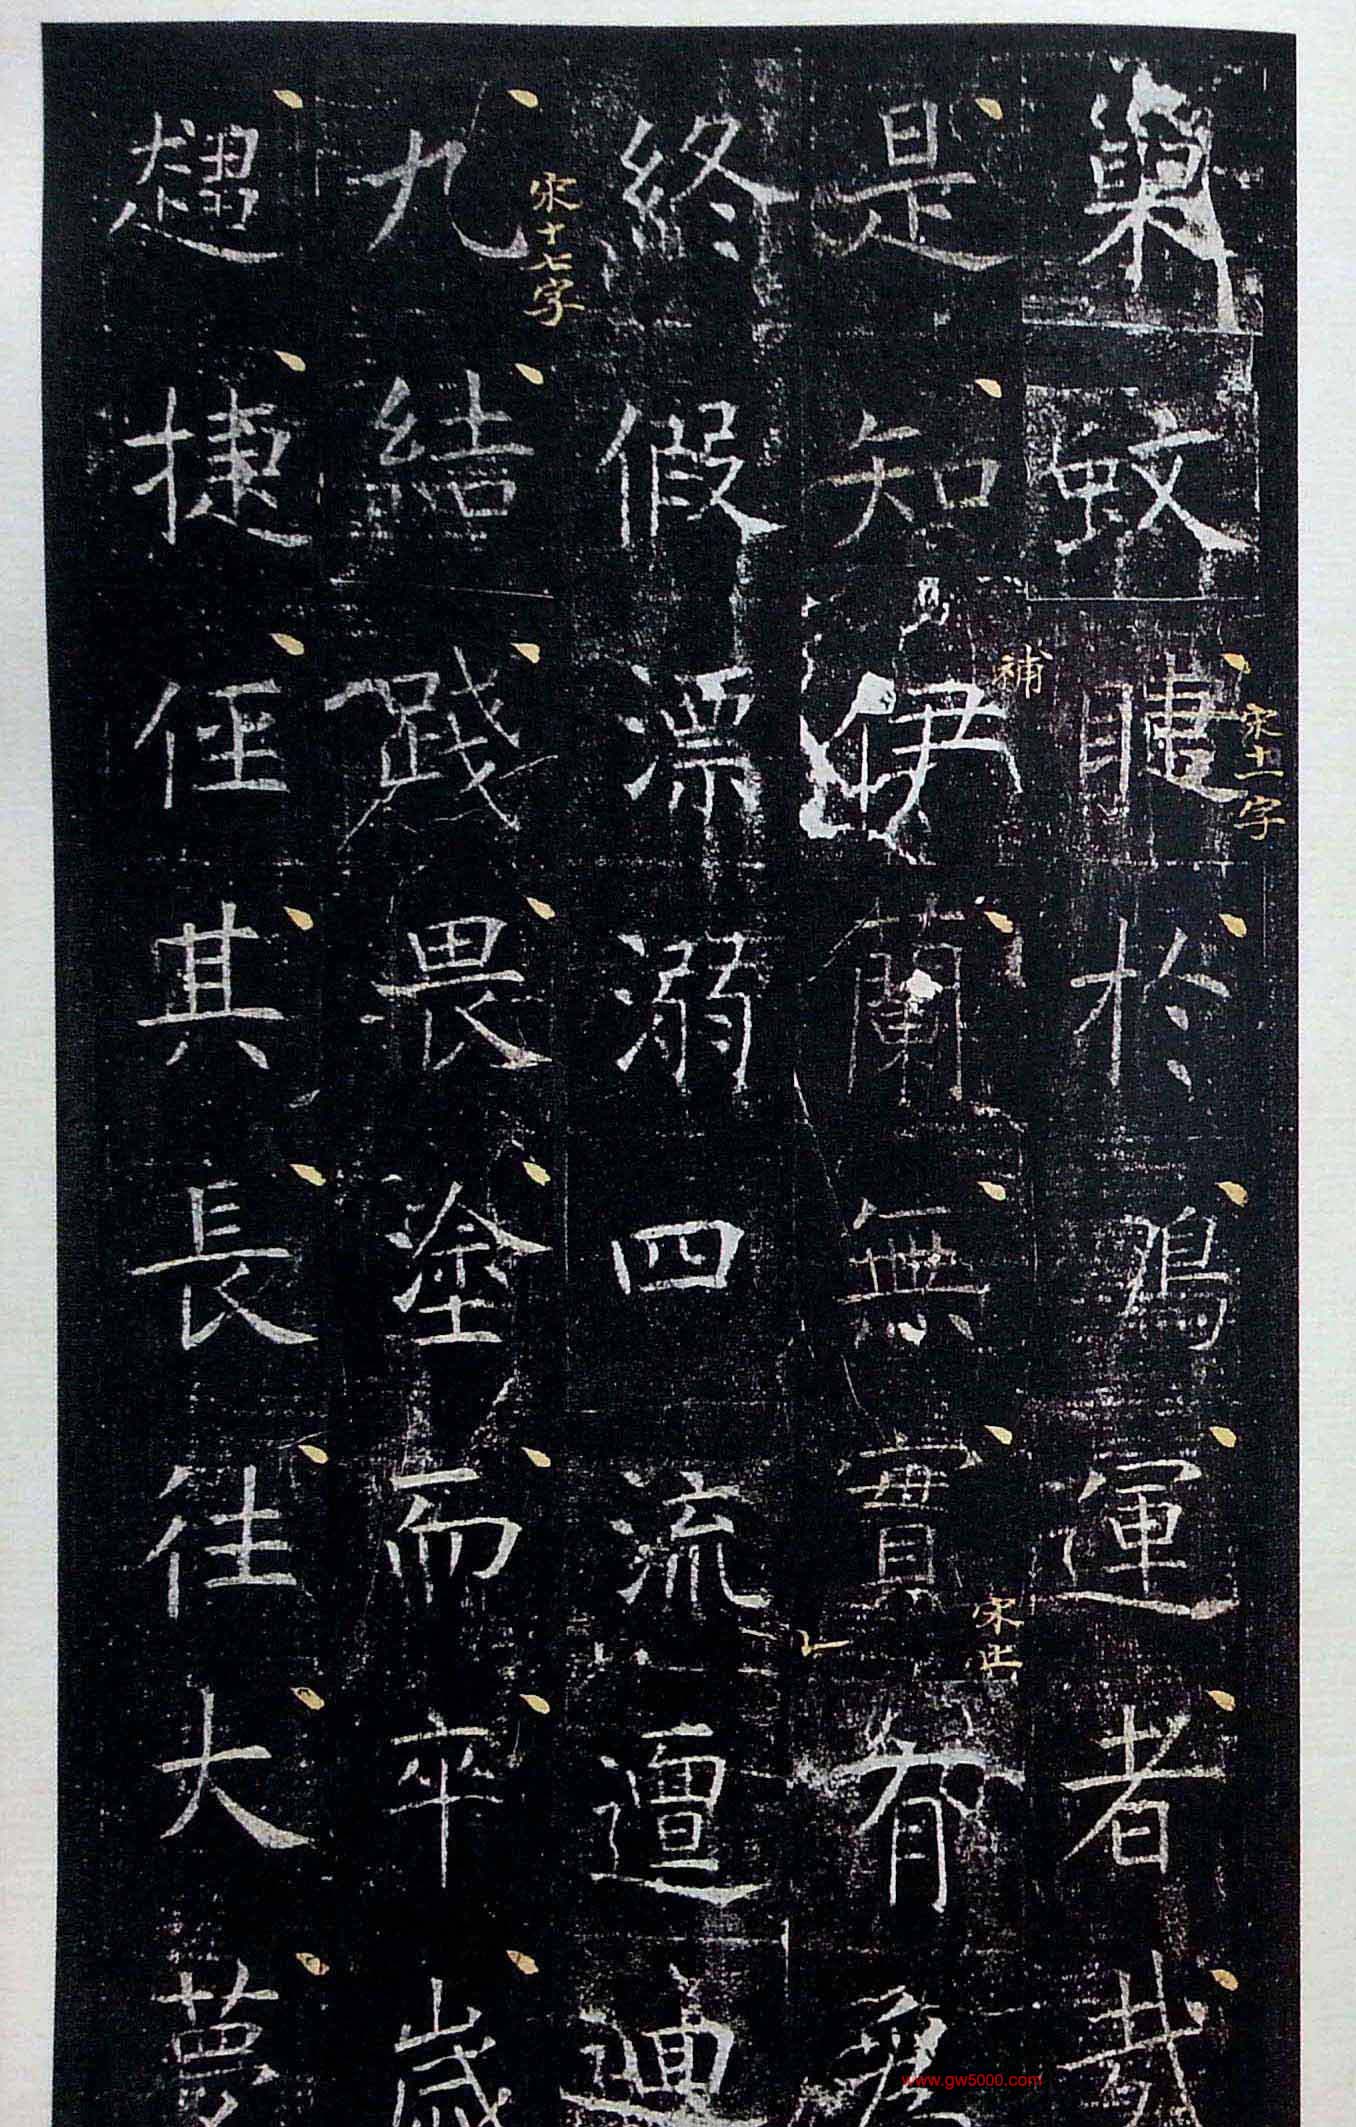 巢蚊睫於運者哉
宋十一字
是知伊蘭無實有爲
補
宋止
終假漂溺四流邅迴
九結踐畏塗而卒歲
宋十七字
趨捷俓其長往大夢
www.gw5000.com